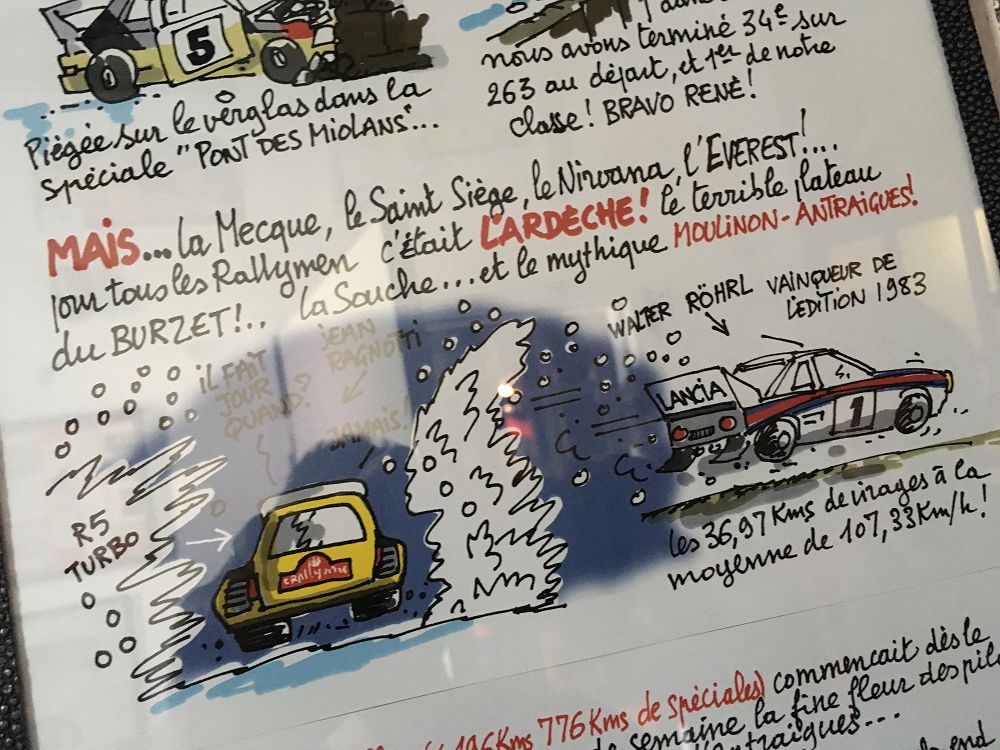 5
Piégée sur le verglas dans la
spéciale "PONT DES MIOLANS"...
nous avons terminé 34e sur
263 au départ, et 1er de notre
classe! BRAVO RENÉ!
MAIS... la Mecque, le Saint Siège, le Nirvana, l'EVEREST!....
pour tous les Rallymen c'était L'ARDÈCHE! le terrible plateau
du BURZET!.. la Souche...et le mythique MOULINON-ANTRAIGUES!
iL FAIT
JOUR
QUAND?
JEAN
RAGNOTTI
JAMAIS!
WALTER RÖHRL VAINQUEUR DE
L'EDITION 1983
LANCIA
1
R5
TURBO
les 36,97 Kms de virages à la
moyenne de 107,33Km/h!
776 Kms de spéciales) commencait dès le
de semaine la fine fleur des
end